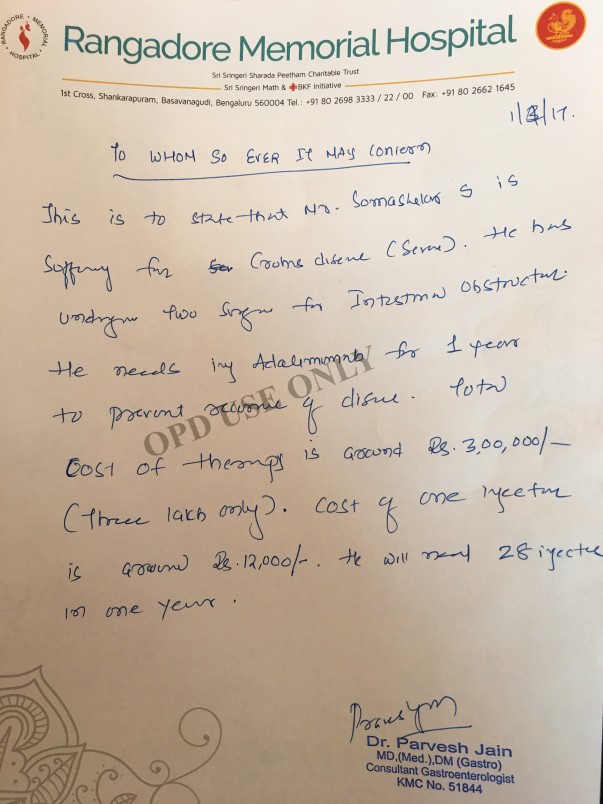 RANGADORE MEMORIAL HOSPITAL
Rangadore Memorial Hospital
Sri Sringeri Sharada Peetham Charitable Trust
Sri Sringeri Math & BKF Initiative
1st Cross, Shankarapuram, Basavanagudi, Bengaluru 560004 Tel.: +91 80 2698 3333 / 22 / 00 Fax: +91 80 2661 1645
To WHOM SO EVER IT MAY Concern
This is to state that Mr. Somashekar S is
suffering for Crohns disease (Severe). He has
undergone two surgeries for Intestinal Obstruction.
He needs inj Adalimumab for 1 year
to prevent recurrence of disease. Total
Cost of therapy is around Rs. 3,00,000/-
(three lakh only). Cost of one injection
is around Rs. 12,000/-. He will need 28 injection
in one year.
OPD USE ONLY
Dr. Parvesh Jain
MD,(Med.),DM (Gastro)
Consultant Gastroenterologist
KMC No. 51844